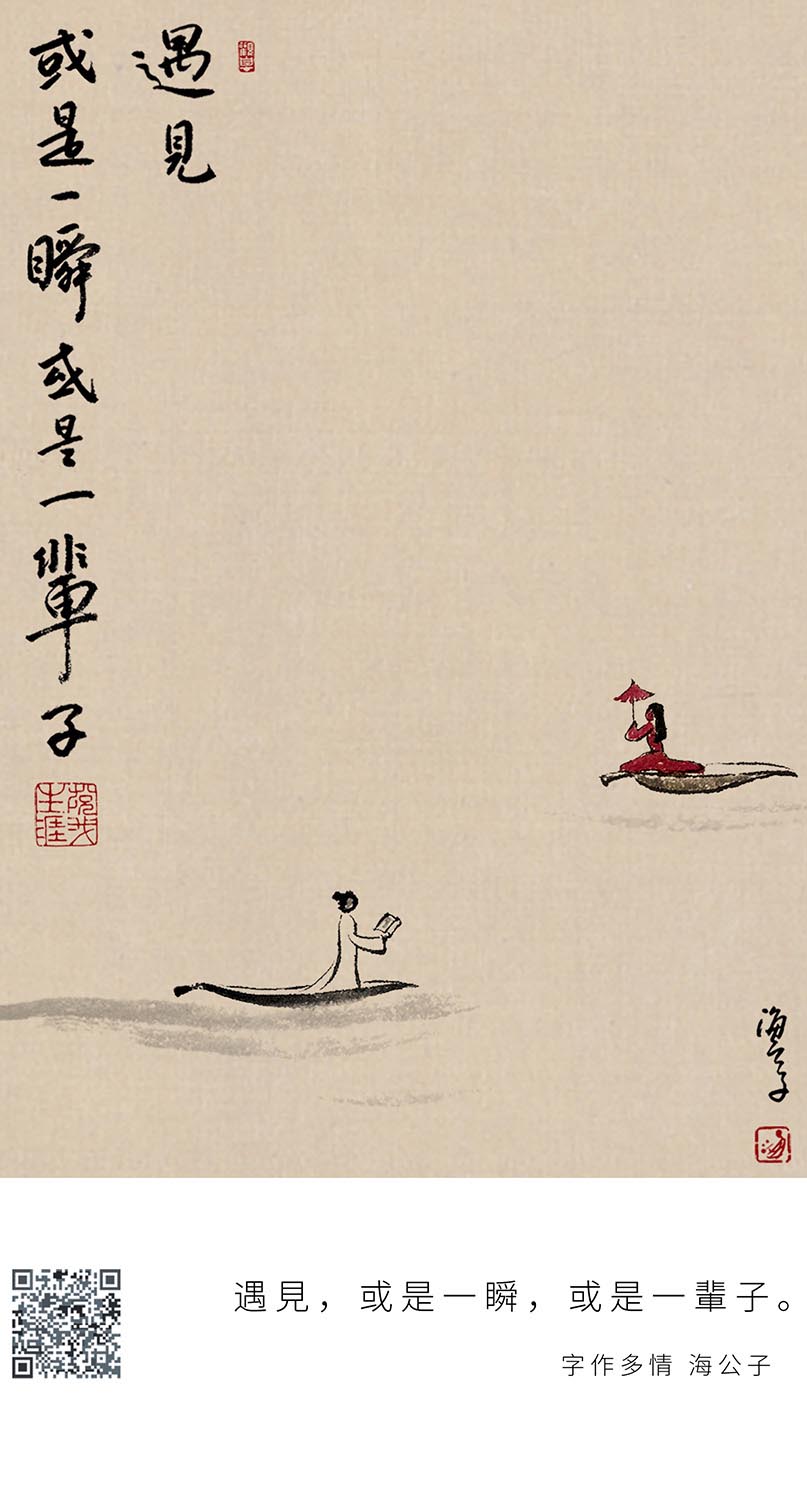 遇見
或是一瞬或是一輩子
海公子
遇見，或是一瞬，或是一輩子。
字作多情 海公子